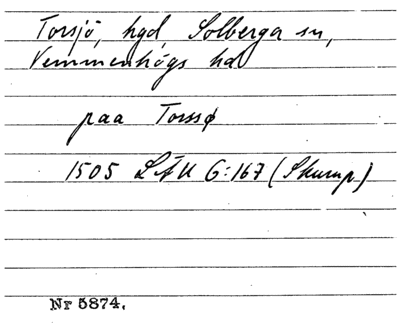 Torsjö, hgd, Solberga sn,
Vemmenhögs hd
paa Torssø
1505 LÄU G:167 (Skurup)
Nr 5874.